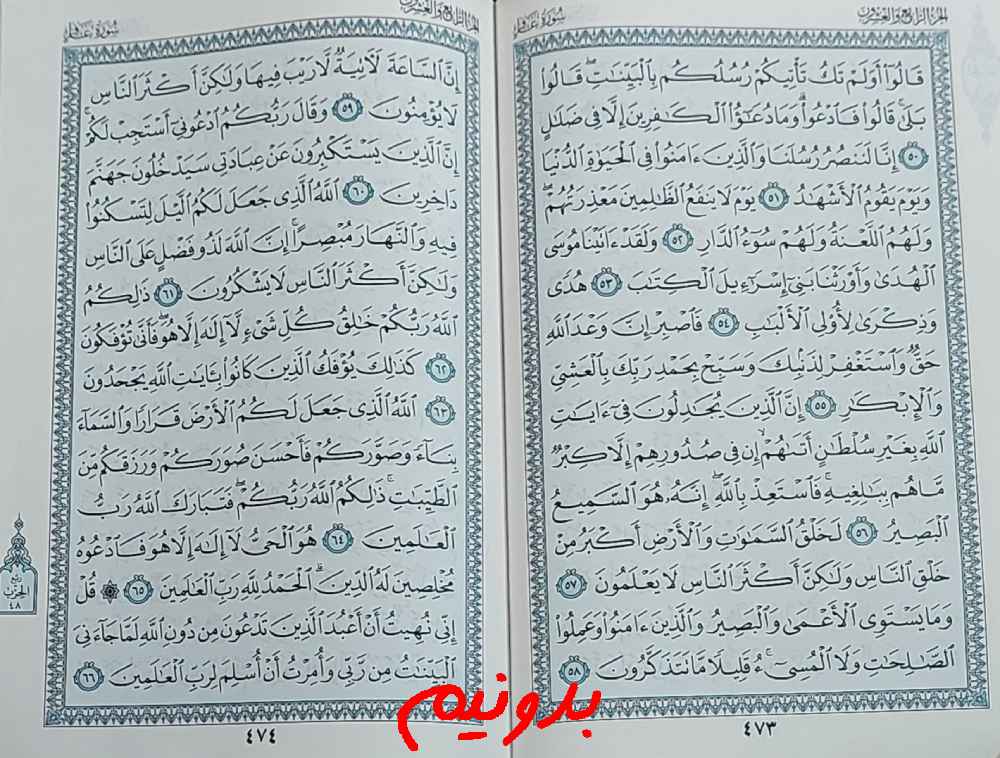 الجزء الرابع والعشرون
سورة غافر
قَالُوٓا۟ أَوَلَمْ تَكُ تَأْتِيكُمْ رُسُلُكُم بِٱلْبَيِّنَـٰتِ ۖ قَالُوا۟
بَلَىٰ ۚ قَالُوا۟ فَٱدْعُوا۟ ۗ وَمَا دُعَـٰٓؤُا۟ ٱلْكَـٰفِرِينَ إِلَّا فِى ضَلَـٰلٍ
٥٠ إِنَّا لَنَنصُرُ رُسُلَنَا وَٱلَّذِينَ ءَامَنُوا۟ فِى ٱلْحَيَوٰةِ ٱلدُّنْيَا
وَيَوْمَ يَقُومُ ٱلْأَشْهَـٰدُ ٥١ يَوْمَ لَا يَنفَعُ ٱلظَّـٰلِمِينَ مَعْذِرَتُهُمْ ۖ
وَلَهُمُ ٱللَّعْنَةُ وَلَهُمْ سُوٓءُ ٱلدَّارِ ٥٢ وَلَقَدْ ءَاتَيْنَا مُوسَى
ٱلْهُدَىٰ وَأَوْرَثْنَا بَنِىٓ إِسْرَٰٓءِيلَ ٱلْكِتَـٰبَ ٥٣ هُدًى
وَذِكْرَىٰ لِأُو۟لِى ٱلْأَلْبَـٰبِ ٥٤ فَٱصْبِرْ إِنَّ وَعْدَ ٱللَّهِ
حَقٌّ وَٱسْتَغْفِرْ لِذَنۢبِكَ وَسَبِّحْ بِحَمْدِ رَبِّكَ بِٱلْعَشِىِّ
وَٱلْإِبْكَـٰرِ ٥٥ إِنَّ ٱلَّذِينَ يُجَـٰدِلُونَ فِىٓ ءَايَـٰتِ
ٱللَّهِ بِغَيْرِ سُلْطَـٰنٍ أَتَىٰهُمْ ۙ إِن فِى صُدُورِهِمْ إِلَّا كِبْرٌ
مَّا هُم بِبَـٰلِغِيهِ ۚ فَٱسْتَعِذْ بِٱللَّهِ ۖ إِنَّهُۥ هُوَ ٱلسَّمِيعُ
ٱلْبَصِيرُ ٥٦ لَخَلْقُ ٱلسَّمَـٰوَٰتِ وَٱلْأَرْضِ أَكْبَرُ مِنْ
خَلْقِ ٱلنَّاسِ وَلَـٰكِنَّ أَكْثَرَ ٱلنَّاسِ لَا يَعْلَمُونَ ٥٧
وَمَا يَسْتَوِى ٱلْأَعْمَىٰ وَٱلْبَصِيرُ وَٱلَّذِينَ ءَامَنُوا۟ وَعَمِلُوا۟
ٱلصَّـٰلِحَـٰتِ وَلَا ٱلْمُسِىٓءُ ۚ قَلِيلًا مَّا تَتَذَكَّرُونَ ٥٨
٤٧٣
الجزء الرابع والعشرون
سورة غافر
إِنَّ ٱلسَّاعَةَ لَـَٔاتِيَةٌ لَّا رَيْبَ فِيهَا وَلَـٰكِنَّ أَكْثَرَ ٱلنَّاسِ
لَا يُؤْمِنُونَ ٥٩ وَقَالَ رَبُّكُمُ ٱدْعُونِىٓ أَسْتَجِبْ لَكُمْ ۚ
إِنَّ ٱلَّذِينَ يَسْتَكْبِرُونَ عَنْ عِبَادَتِى سَيَدْخُلُونَ جَهَنَّمَ
دَاخِرِينَ ٦٠ ٱللَّهُ ٱلَّذِى جَعَلَ لَكُمُ ٱلَّيْلَ لِتَسْكُنُوا۟
فِيهِ وَٱلنَّهَارَ مُبْصِرًا ۚ إِنَّ ٱللَّهَ لَذُو فَضْلٍ عَلَى ٱلنَّاسِ
وَلَـٰكِنَّ أَكْثَرَ ٱلنَّاسِ لَا يَشْكُرُونَ ٦١ ذَٰلِكُمُ
ٱللَّهُ رَبُّكُمْ خَـٰلِقُ كُلِّ شَىْءٍ لَّآ إِلَـٰهَ إِلَّا هُوَ ۖ فَأَنَّىٰ تُؤْفَكُونَ
٦٢ كَذَٰلِكَ يُؤْفَكُ ٱلَّذِينَ كَانُوا۟ بِـَٔايَـٰتِ ٱللَّهِ يَجْحَدُونَ
٦٣ ٱللَّهُ ٱلَّذِى جَعَلَ لَكُمُ ٱلْأَرْضَ قَرَارًا وَٱلسَّمَآءَ
بِنَآءً وَصَوَّرَكُمْ فَأَحْسَنَ صُوَرَكُمْ وَرَزَقَكُم مِّنَ
ٱلطَّيِّبَـٰتِ ۚ ذَٰلِكُمُ ٱللَّهُ رَبُّكُمْ ۖ فَتَبَارَكَ ٱللَّهُ رَبُّ
ٱلْعَـٰلَمِينَ ٦٤ هُوَ ٱلْحَىُّ لَآ إِلَـٰهَ إِلَّا هُوَ فَٱدْعُوهُ
مُخْلِصِينَ لَهُ ٱلدِّينَ ۗ ٱلْحَمْدُ لِلَّهِ رَبِّ ٱلْعَـٰلَمِينَ ٦٥ ۞ قُلْ
إِنِّى نُهِيتُ أَنْ أَعْبُدَ ٱلَّذِينَ تَدْعُونَ مِن دُونِ ٱللَّهِ لَمَّا جَآءَنِىَ
ٱلْبَيِّنَـٰتُ مِن رَّبِّى وَأُمِرْتُ أَنْ أُسْلِمَ لِرَبِّ ٱلْعَـٰلَمِينَ ٦٦
٤٧٤
ربع
الحزب
٤٨
بدونیم